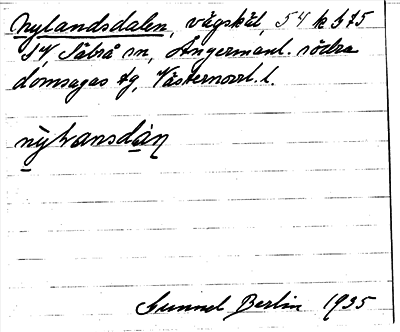 Nylandsdalen, vägskäl, 54 k 6 75
SV, Säbrå sn, Ångermanl. södra
domsagas tg, Västernorrl. l.
nylansdàn
Gunnel Berlin 1935